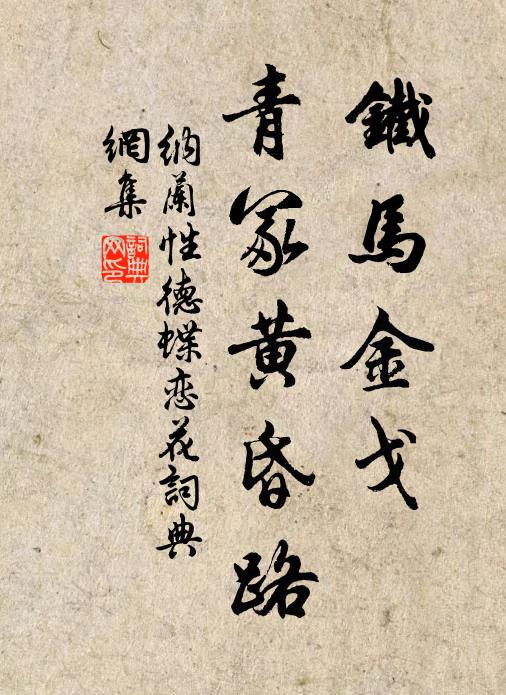 鐵馬金戈
青冢黃昏路
納蘭性德蝶恋花詞典
網集
詞典
网印